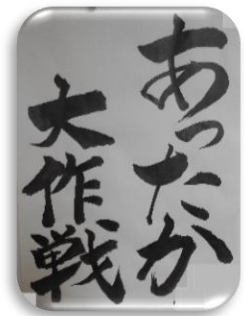 あったか
大作戦